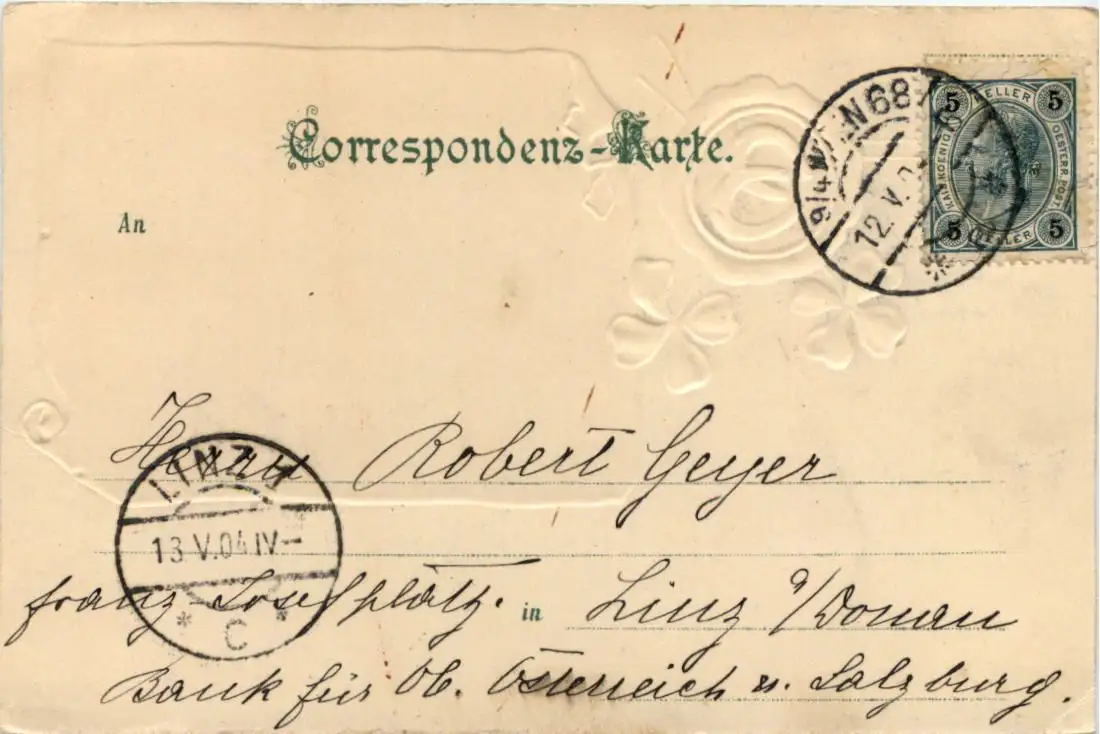 Correspondenz-Karte.
An
5 HELLER 5
KAIS. KOENIGL. OESTERR. POST.
5 HELLER 5
WIEN 68
12.V.0
Herrn Robert Geyer
LINZ
13.V.04 IV-
* C *
Franz-Josefplatz. in Linz a/Donau
Bank für Ob. Österreich u. Salzburg.